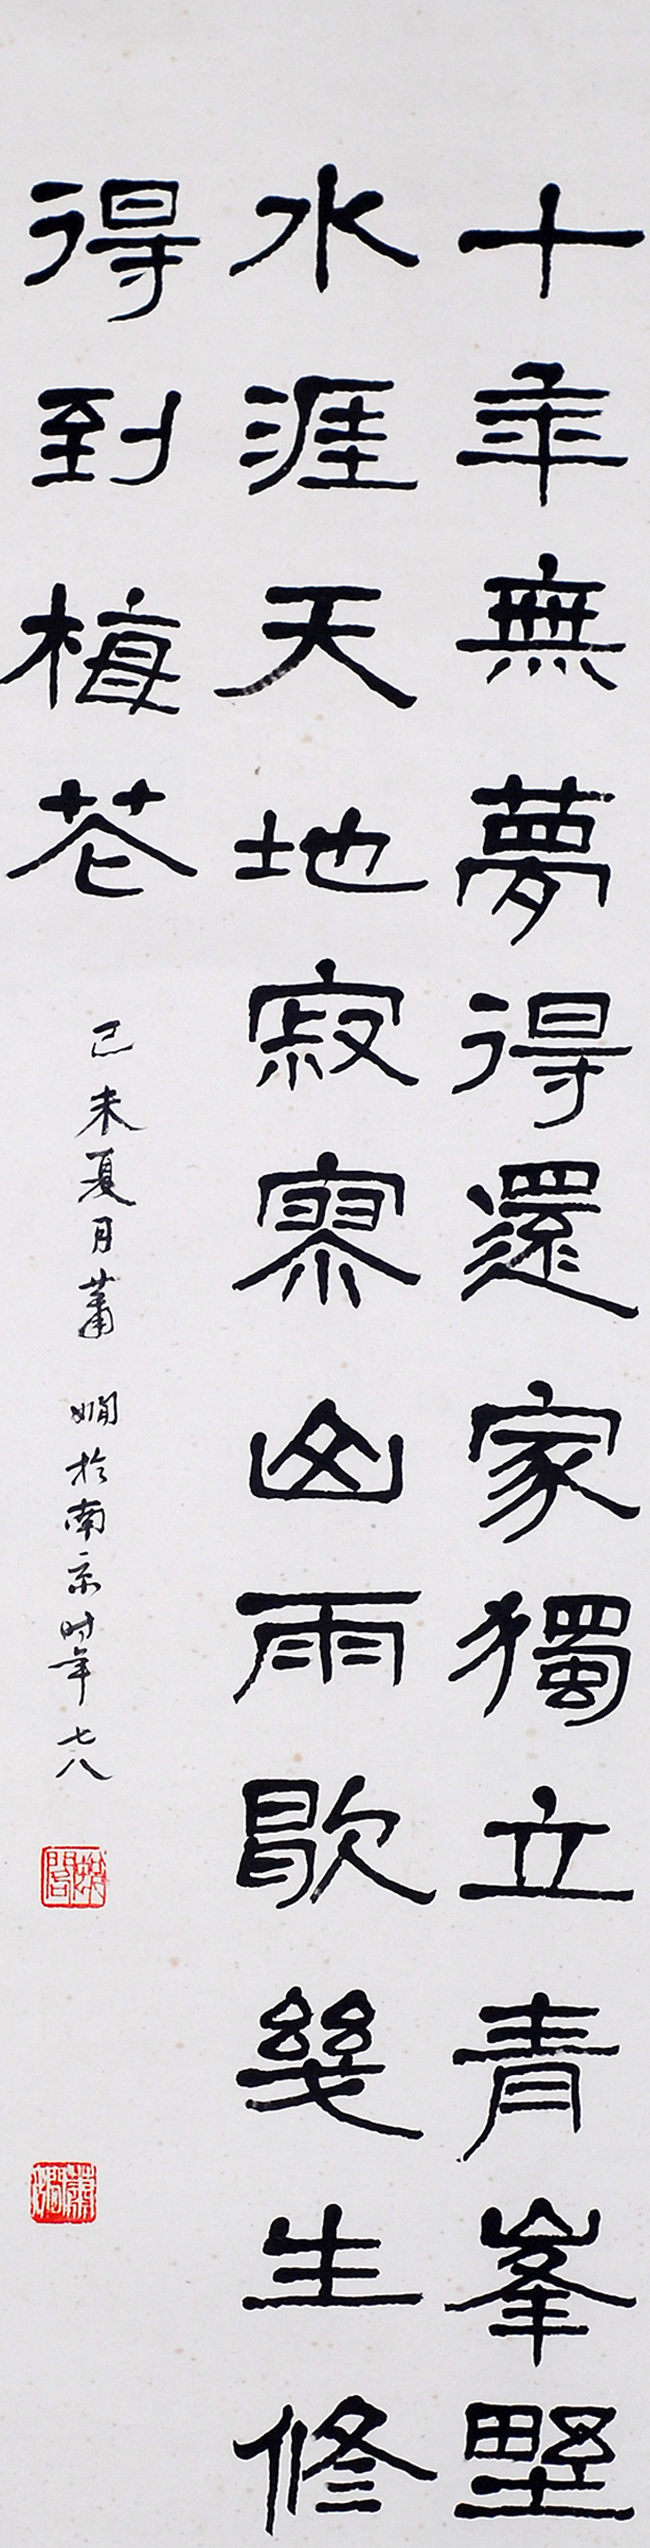 十年無夢得還家獨立青峯野
水涯天地寂寥山雨歇幾生修
得到梅花
己未夏月蕭嫻於南京时年七八
蛻閣
蕭嫻